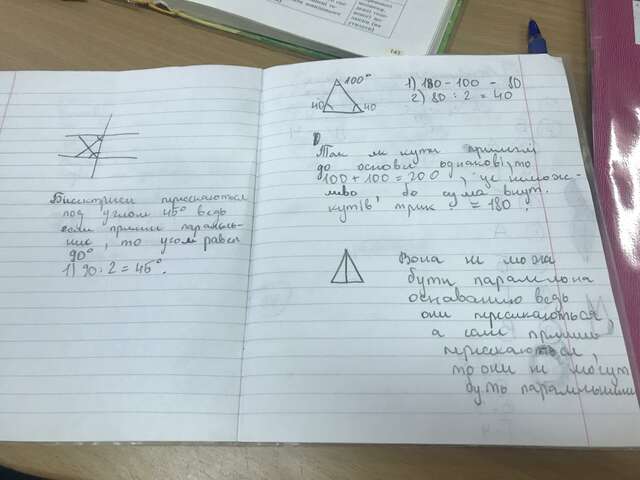 Бисектрисы пересекаються
под углом 45° ведь
если прямые паралель-
ние, то угол равен
90°
1) 90 : 2 = 45°.
100°
40
40
1) 180 - 100 - 80
2) 80 : 2 = 40
Так як кути прилеглі
до основи однакові, то
100 + 100 = 200, це немож-
ливо, бо сума внут.
кутів, трик. = 180.
Вона не може
бути паралельна
основанию ведь
они пересикаються,
а если прямые
пересекаються,
то они не могут
буть паралельными
142